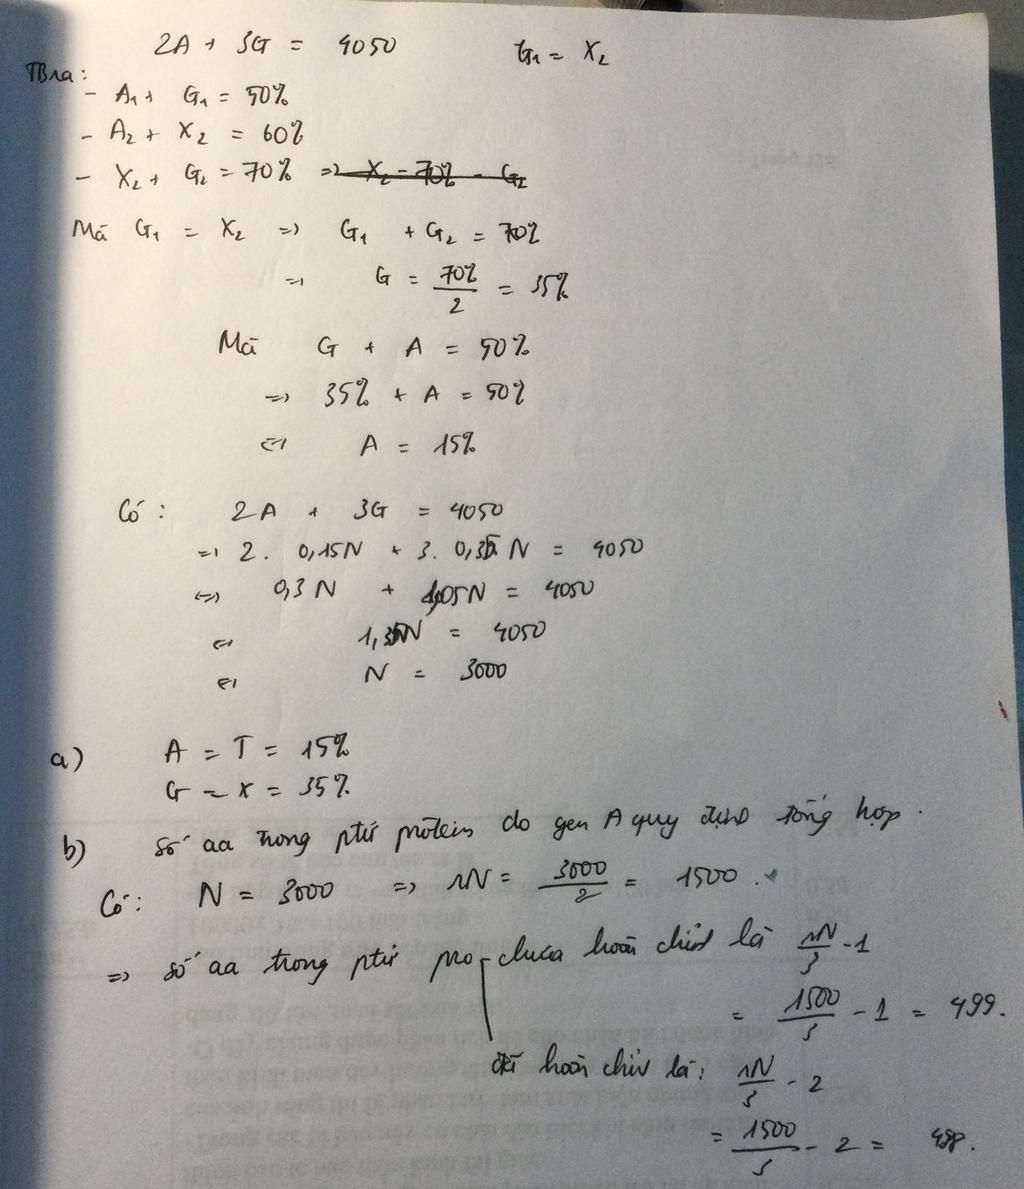 2A + 3G = 4050 G1 = X2
Tbra:
- A1 + G1 = 50%
- A2 + X2 = 60%
- X2 + G2 = 70% => X2 = 70% - G2
Mà G1 = X2 => G1 + G2 = 70%
=> G = 70%/2 = 35%
Mà G + A = 50%
=> 35% + A = 50%
<=> A = 15%
Có: 2A + 3G = 4050
=> 2. 0,15N + 3. 0,35 N = 4050
<=> 0,3 N + 1,05N = 4050
<=> 1,35N = 4050
<=> N = 3000
a) A = T = 15%
G = X = 35%.
b) số aa trong ptử protein do gen A quy định tổng hợp.
Có: N = 3000 => rN = 3000/2 = 1500.
=> số aa trong ptử pro chưa hoàn chỉnh là rN/3 - 1
= 1500/3 - 1 = 499.
đã hoàn chỉnh là: rN/3 - 2
= 1500/3 - 2 = 498.